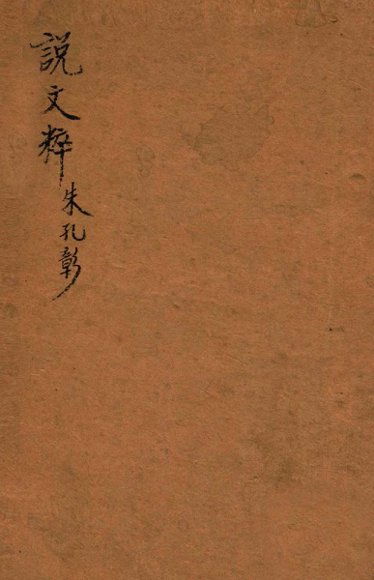 説文粹
朱孔彰